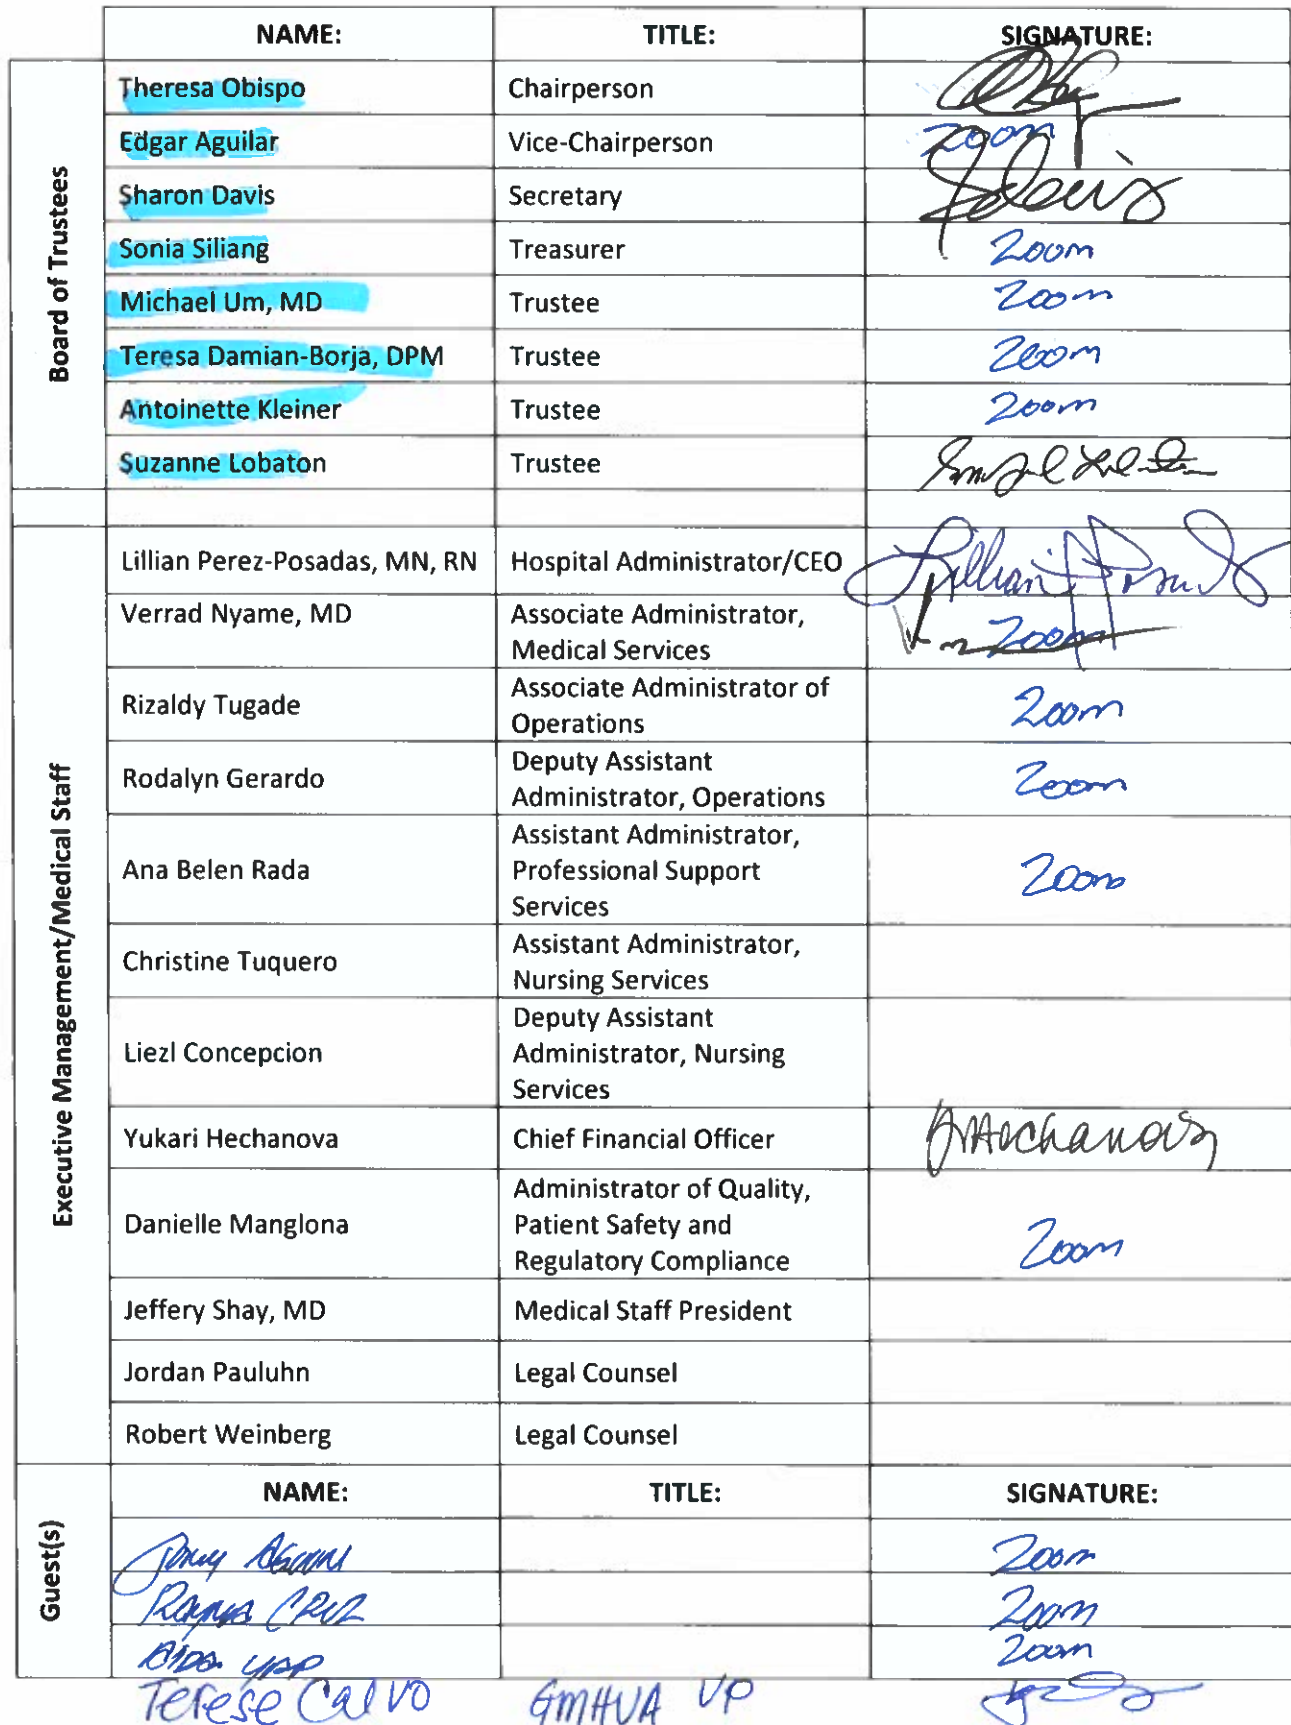 NAME: TITLE: SIGNATURE:
Board of Trustees
Theresa Obispo Chairperson
Edgar Aguilar Vice-Chairperson Zoom
Sharon Davis Secretary
Sonia Siliang Treasurer Zoom
Michael Um, MD Trustee Zoom
Teresa Damian-Borja, DPM Trustee Zoom
Antoinette Kleiner Trustee Zoom
Suzanne Lobaton Trustee
Executive Management/Medical Staff
Lillian Perez-Posadas, MN, RN Hospital Administrator/CEO
Verrad Nyame, MD Associate Administrator,
Medical Services Zoom
Rizaldy Tugade Associate Administrator of
Operations Zoom
Rodalyn Gerardo Deputy Assistant
Administrator, Operations Zoom
Assistant Administrator,
Ana Belen Rada Professional Support Zoom
Services
Christine Tuquero Assistant Administrator,
Nursing Services
Deputy Assistant
Liezl Concepcion Administrator, Nursing
Services
Yukari Hechanova Chief Financial Officer
Administrator of Quality,
Danielle Manglona Patient Safety and Zoom
Regulatory Compliance
Jeffery Shay, MD Medical Staff President
Jordan Pauluhn Legal Counsel
Robert Weinberg Legal Counsel
Guest(s)
NAME: TITLE: SIGNATURE:
Zoom
Cruz Zoom
Yap Zoom
Terese Calvo GMHVA VP